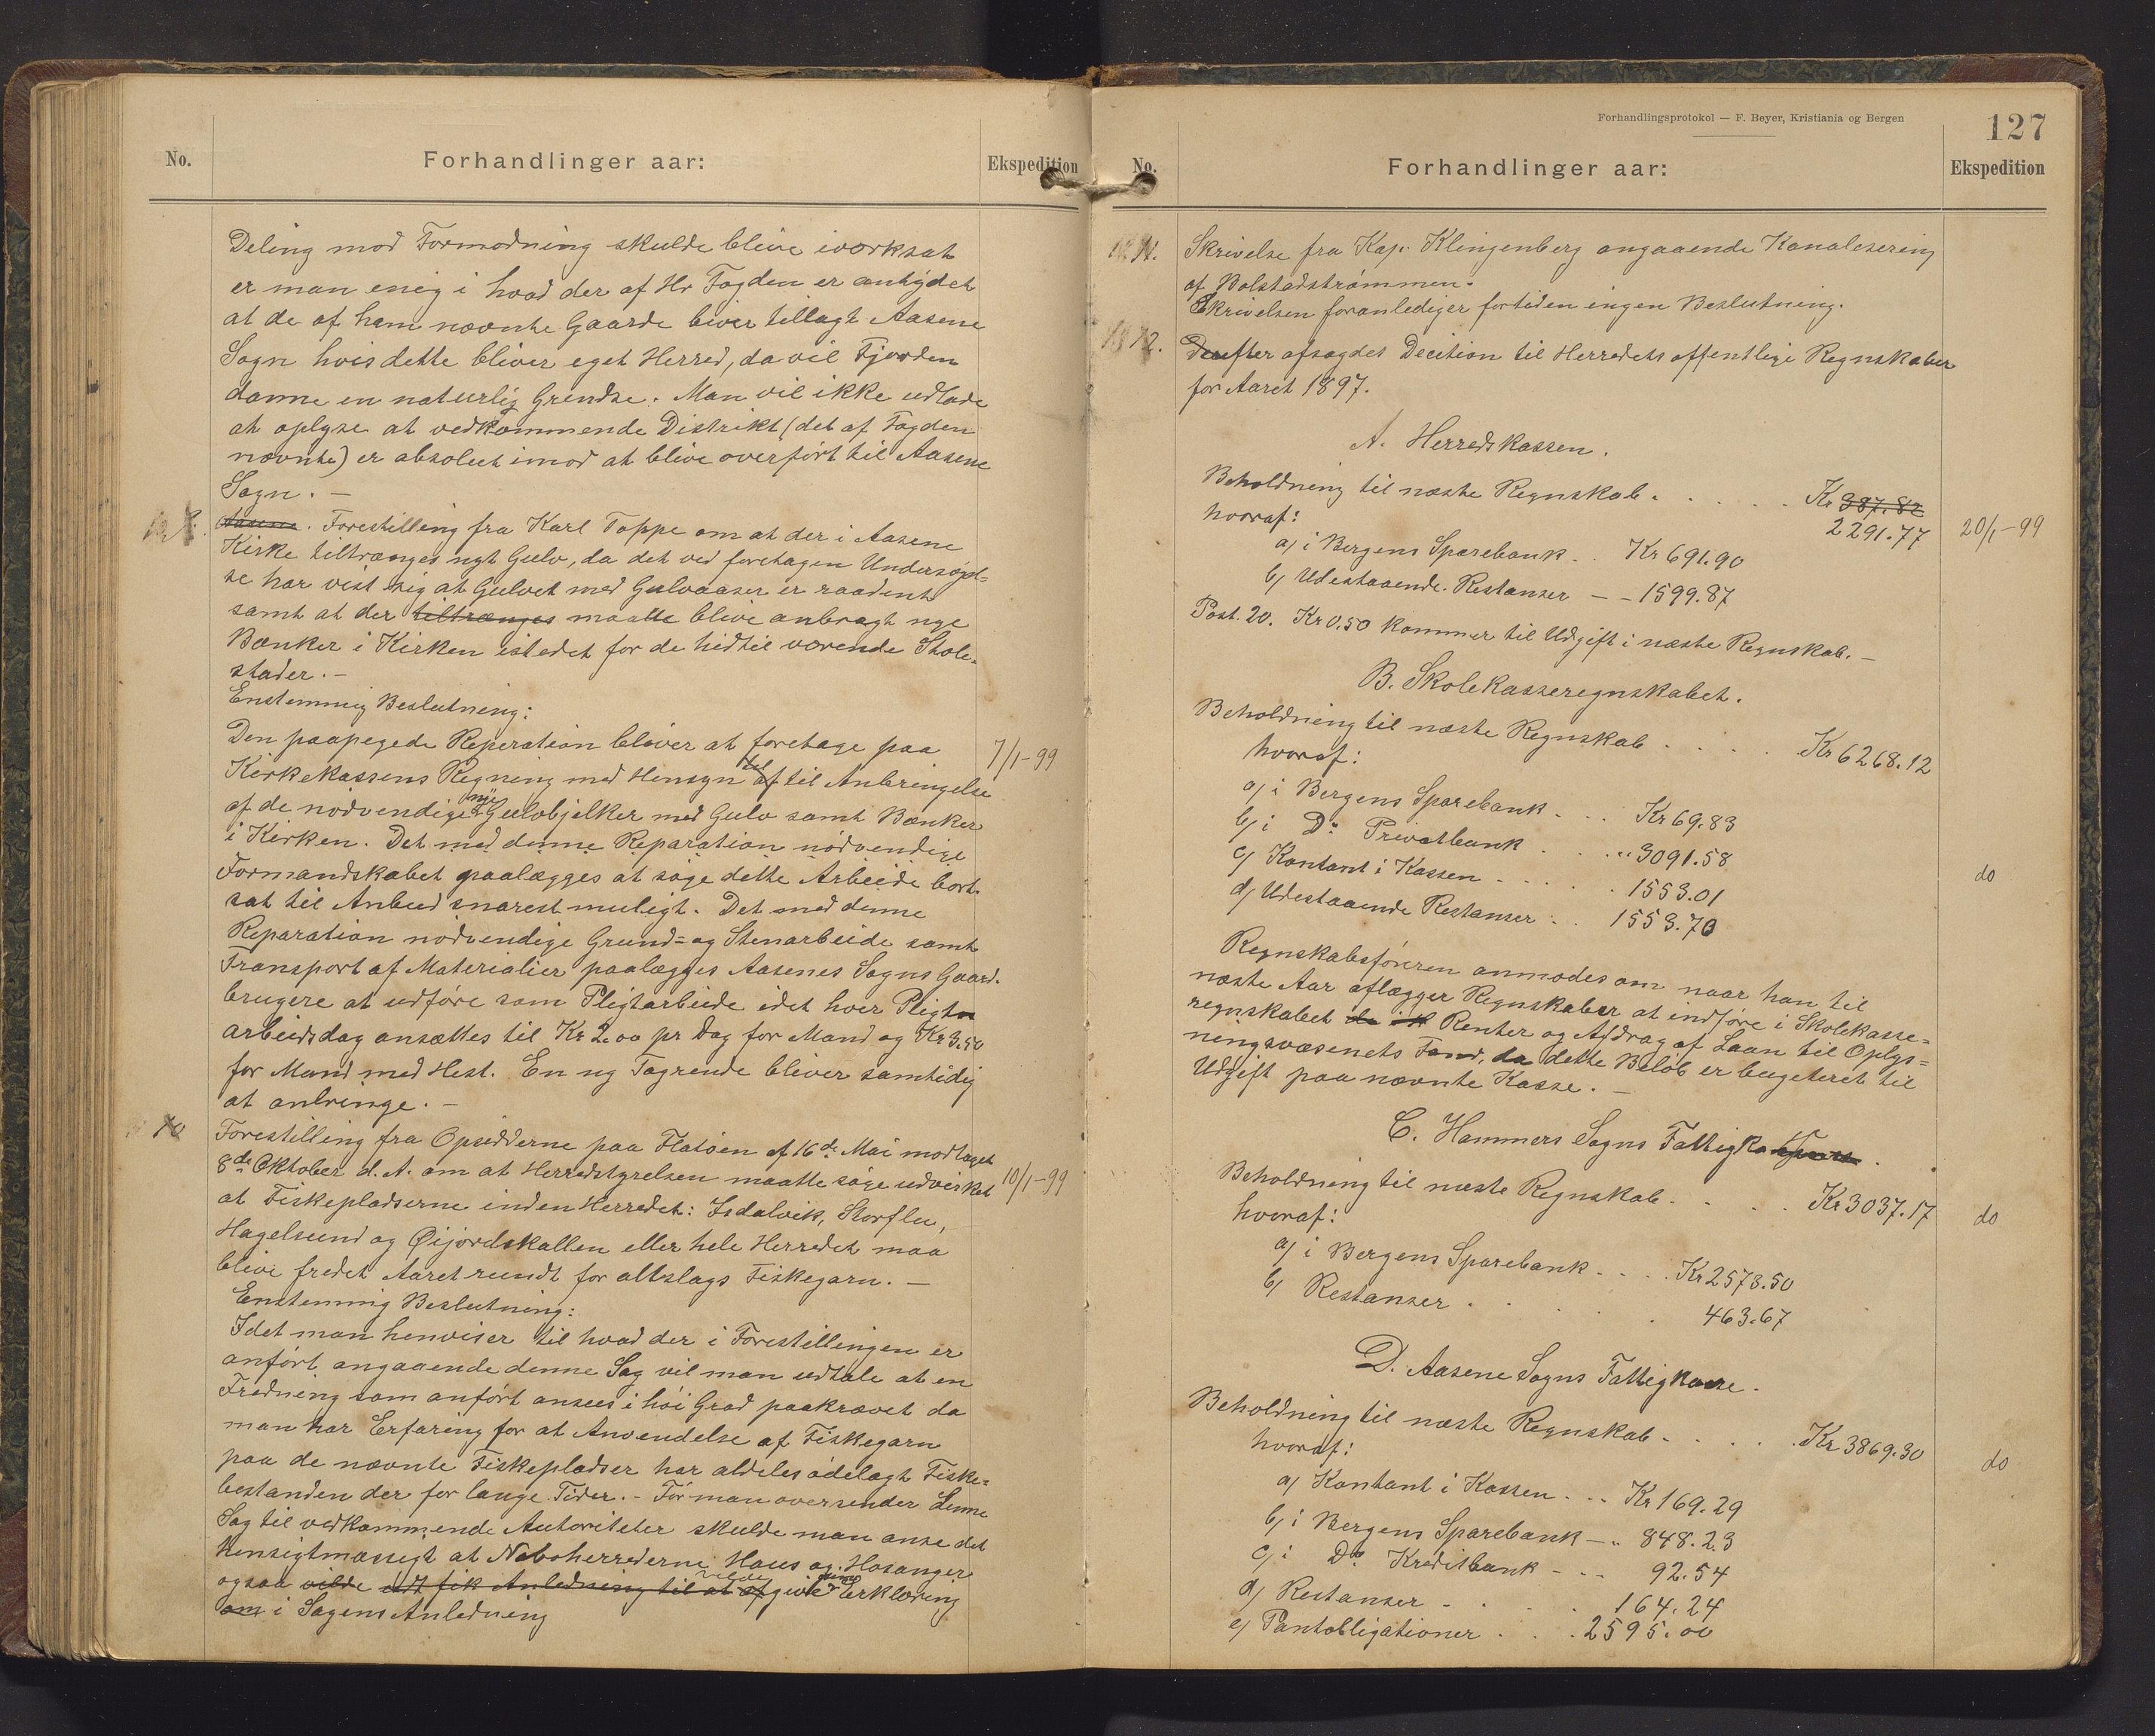 No. Forhandlinger aar: Ekspedition
Deling mod Formodning skulde blive iværksat
er man enig i hvad der af Hr Fogden er antydet
at de af ham nævnte Gaarde biver tillagt Aasene
Sogn hvis dette bliver eget Herred, da vil Fjorden
danne en naturlig Grendse. Man vil ikke udlade
at oplyse at vedkommende Distrikt (det af Fogden
nævnte) er absolut imod at blive overført til Aasene
Sogn. —
Aasene. Forestilling fra Karl Toppe om at der i Aasene
Kirke tiltrænges nyt Gulv, da det ved foretagen Undersøgel=
se har vist sig at Gulvet med Gulvaaser er raadent
samt at der tiltrænges maatte blive anbragt nye
Bænker i Kirken istedet for de hidtil værende Stole-
stader. —
Enstemmig Beslutning:
Den paapegede Reperation bliver at foretage paa 7/1-99
Kirkekassens Regning med Hensyn af til til Anbringelse
af de nødvendige nye Gulvbjelker med Gulv samt Bænker
i Kirken. Det med denne Reparation nødvendige
Formandskabet paalægges at søge dette Arbeide bort-
sat til Anbud snarest muligt. Det med denne
Reparation nødvendige Grund= og Stenarbeide samt
Transport af Materialier paalægges Aasenes Sogns Gaard-
brugere at udføre som Pligtarbeide idet hver Pligt
arbeidsdag ansættes til Kr 2.00 pr Dag for Mand og Kr 3.50
for Mand med Hest. En ny Tagrende bliver samtidig
at anbringe. —
10 Forestilling fra Opsidderne paa Flatøen af 16de Mai modtaget
8de Oktober d. A. om at Herredstyrelsen maatte søge udvirket 10/1-99
at Fiskepladserne inden Herredet: Isdalvik, Storflu,
Hagelsund og Øijordskallen eller hele Herredet maa
blive fredet Aaret rundt for altslags Fiskegarn. —
Enstemmig Beslutning:
Idet man henviser til hvad der i Forestillingen er
anført angaaende denne Sag vil man udtale at en
Fredning som anført ansees i høi Grad paakrævet da
man har Erfaring for at Anvendelse af Fiskegarn
paa de nævnte Fiskepladser har aldeles ødelagt Fiske=
bestanden der for lange Tider. - Før man oversender denne
Sag til vedkommende Autoriteter skulde man anse det
hensigtmæssigt at Naboherrederne Haus og Hosanger
ogsaa vilde fik Anledning til at afgive Erklæring
om i Sagens Anledning
Forhandlingsprotokol — F. Beyer, Kristiania og Bergen
127
No. Forhandlinger aar: Ekspedition
11. Skrivelse fra Kap. Klingenberg angaaende Kanalisering
af Bolstadstrømmen.
Skrivelsen foranlediger fortiden ingen Beslutning.
12. Derefter afsagdes Decition til Herredets offentlige Regnskaber
for Aaret 1897.
A. Herredskassen.
Beholdning til næste Regnskab . . . . . Kr 387.82
2291.77 20/1-99
hvoraf:
a) i Bergens Sparebank . . Kr 691.90
b) Udestaaende Restanser — - 1599.87
Post. 20. Kr 0.50 kommer til Udgift i næste Regnskab. —
B. Skolekasseregnskabet.
Beholdning til næste Regnskab . . . . . Kr 6268.12
hvoraf:
a) i Bergens Sparebank . . . Kr 69.83
b) i Do Privatbank . . . " 3091.58
c) Kontant i Kassen . . . . . 1553.01 do
d) Udestaaende Restanser . . 1553.70
Regnskabsføreren anmodes om naar han til
næste Aar aflægger Regnskaber at indføre i Skolekasse-
regnskabet Renter og Afdrag af Laan til Oplys=
ningsvæsenets Fond, da dette Beløb er bugeteret til
Udgift paa nævnte Kasse. —
C. Hammers Sogns Fattigka
Beholdning til næste Regnskab . . . . Kr 3037.17 do
hvoraf:
a) i Bergens Sparebank . . . . Kr 2573.50
b) Restanser . . . . . 463.67
D. Aasene Sogns Fattigkasse.
Beholdning til næste Regnskab . . . . . Kr 3869.30 do
hvoraf:
a) Kontant i Kassen . . . Kr 169.29
b) i Bergens Sparebank — " 848.23
c) i Do Kreditbank - - - 92.54
d) Restanser . . . . 164.24
e) Pantobligationer . . . 2595.00